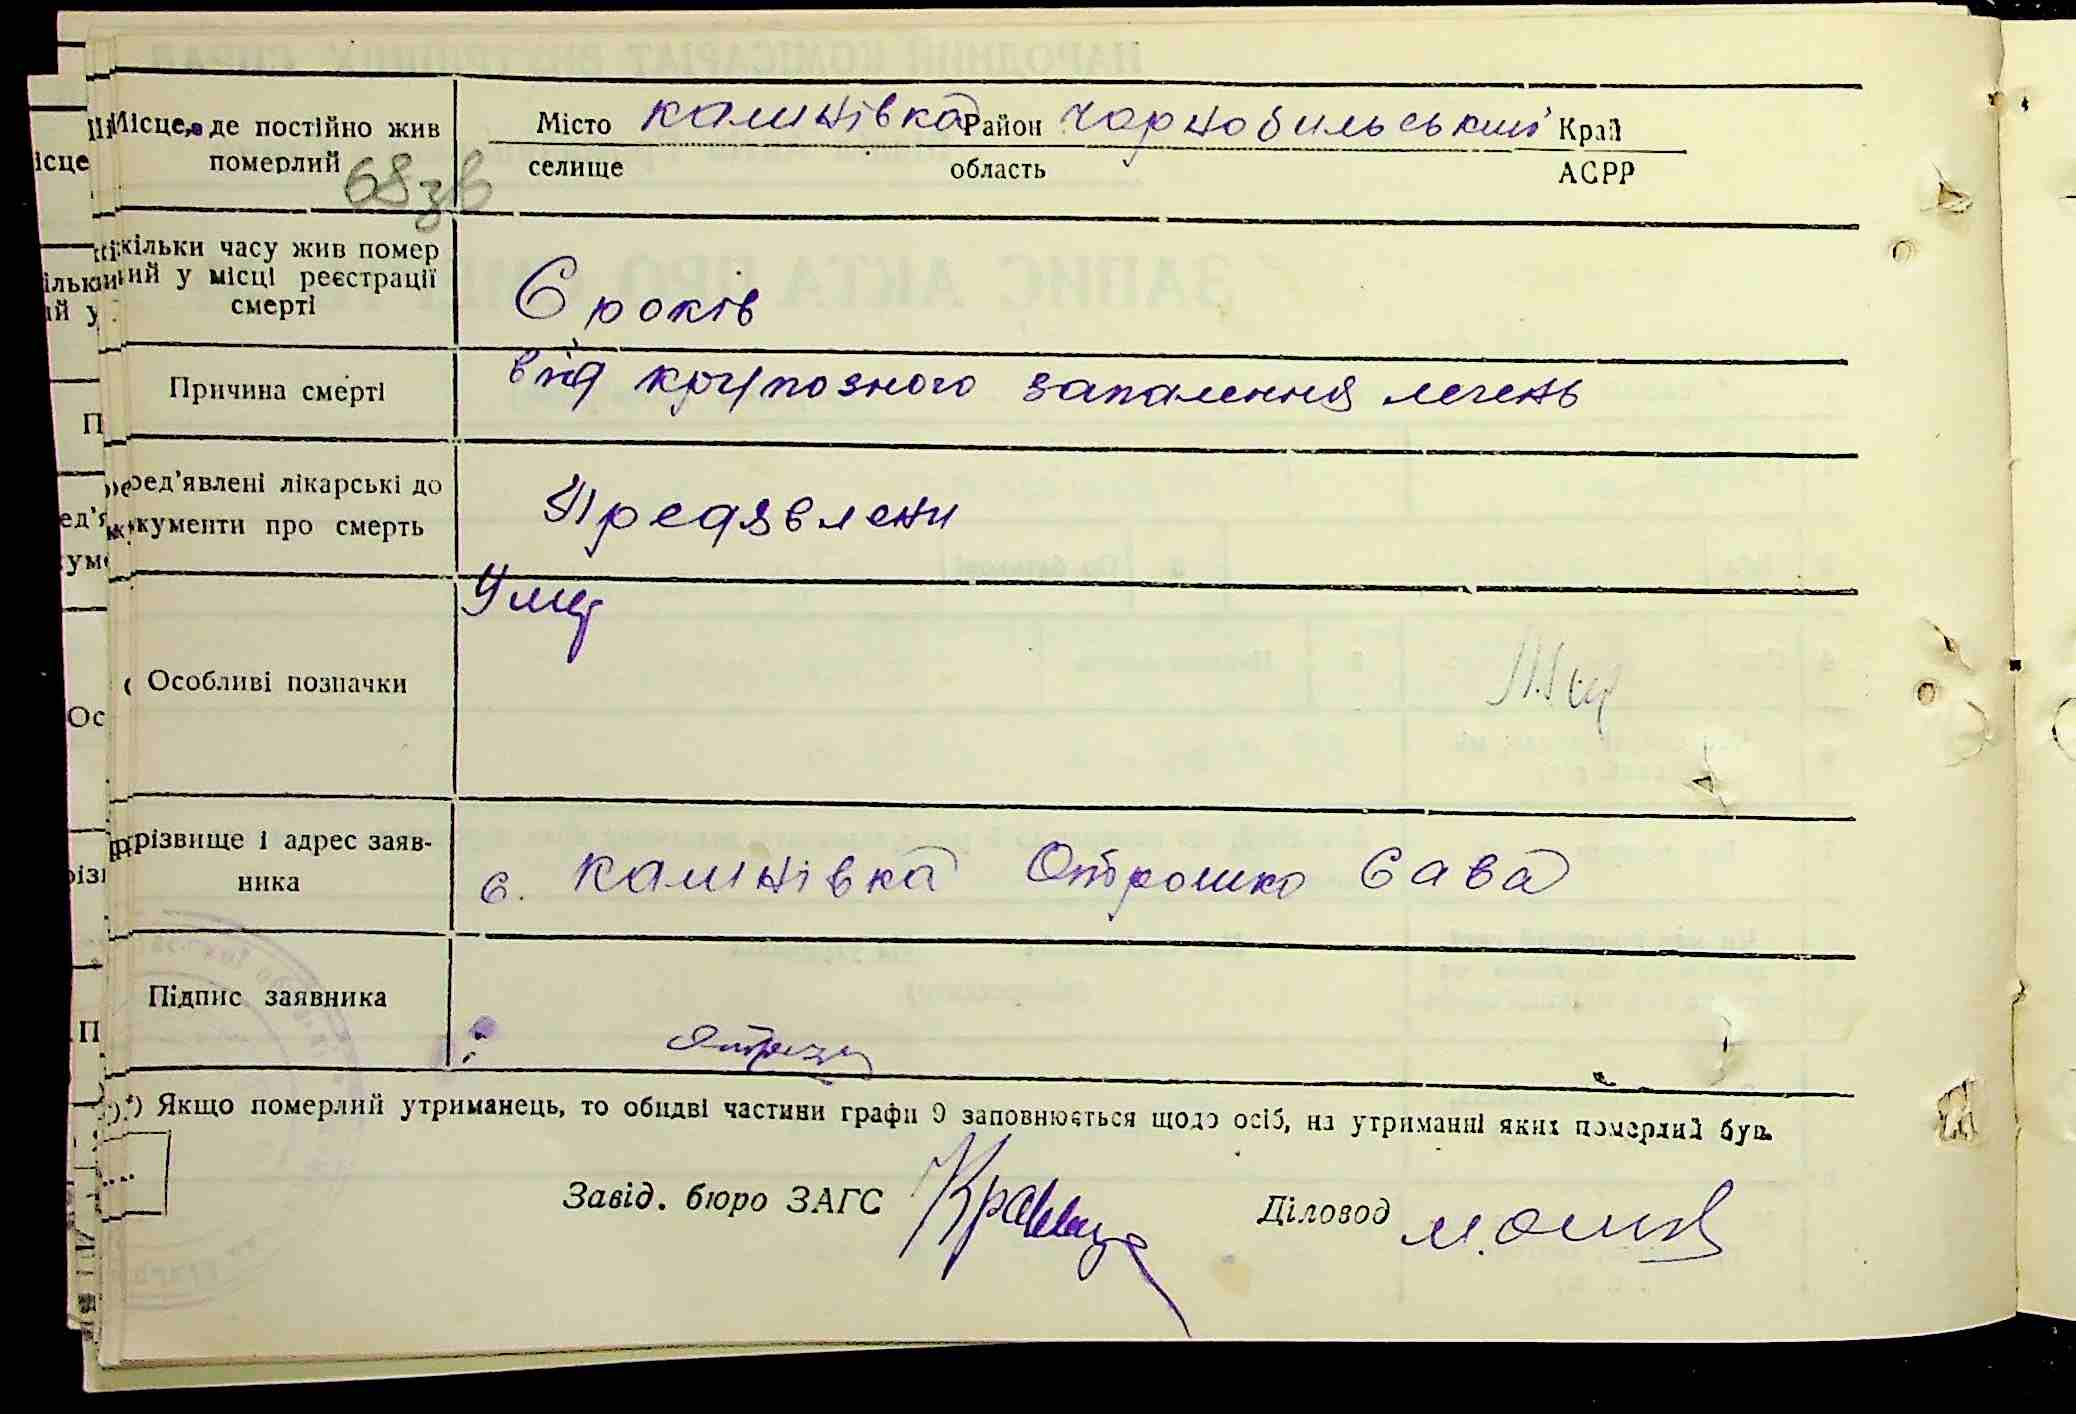 Місце, де постійно жив
померлий
68зв
Місто Калинівка Район Чорнобильський Край
селище область АСРР
кільки часу жив помер
ий у місці реєстрації
смерті
6 років
Причина смерті
від крупозного запалення легень
ред'явлені лікарські до
кументи про смерть
Предявлени
Особливі позначки
різвище і адрес заяв-
ника
с. Калинівка Отрошко Сава
Підпис заявника
*) Якщо померлий утриманець, то обидві частини графи 9 заповнюється щодо осіб, на утриманні яких померлий був.
Завід. бюро ЗАГС
Діловод